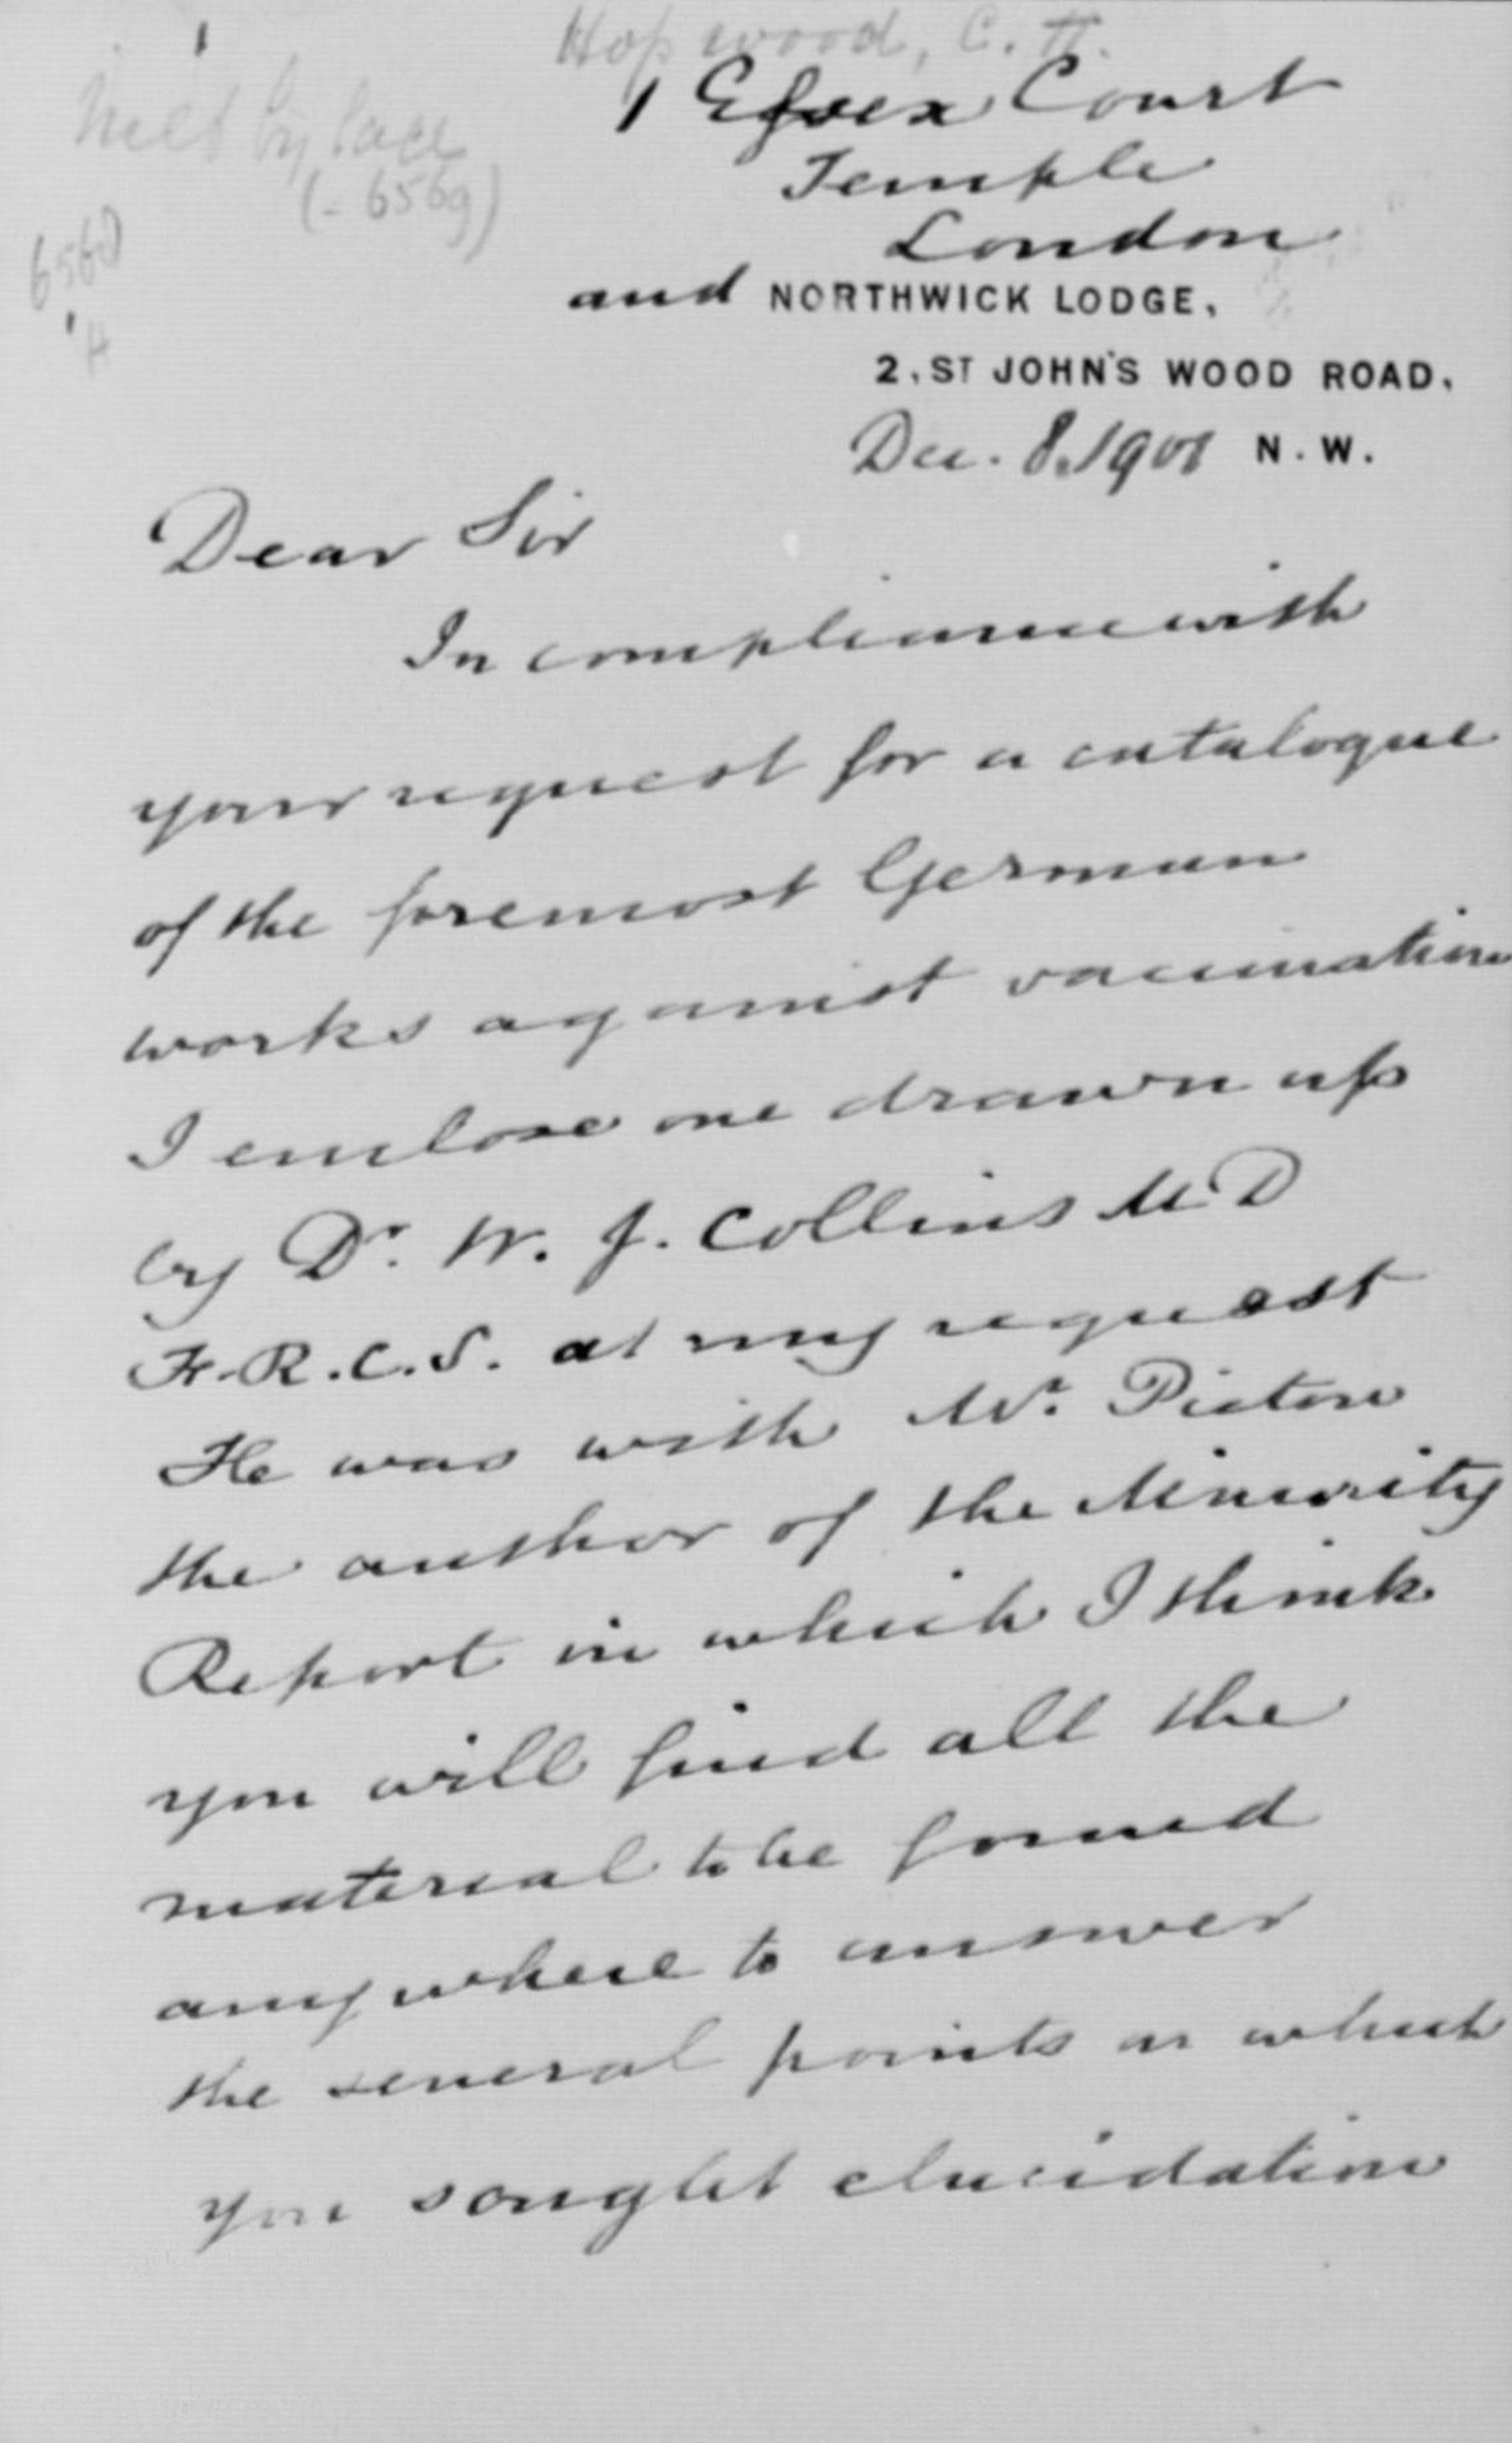 Hopwood, C. H.
1 Essex Court
Temple
London
and NORTHWICK LODGE,
2, ST JOHN'S WOOD ROAD,
Dec. 8. 1901 N. W.
(- 6569)
6568
Dear Sir
In compliance with
your request for a catalogue
of the foremost German
works against vaccination
I enclose one drawn up
by Dr. W. J. Collins M D
F. R. C. S. at my request
He was with Mr. Picton
the author of the Minority
Report in which I think
you will find all the
material to be found
anywhere to answer
the several points on which
you sought elucidation